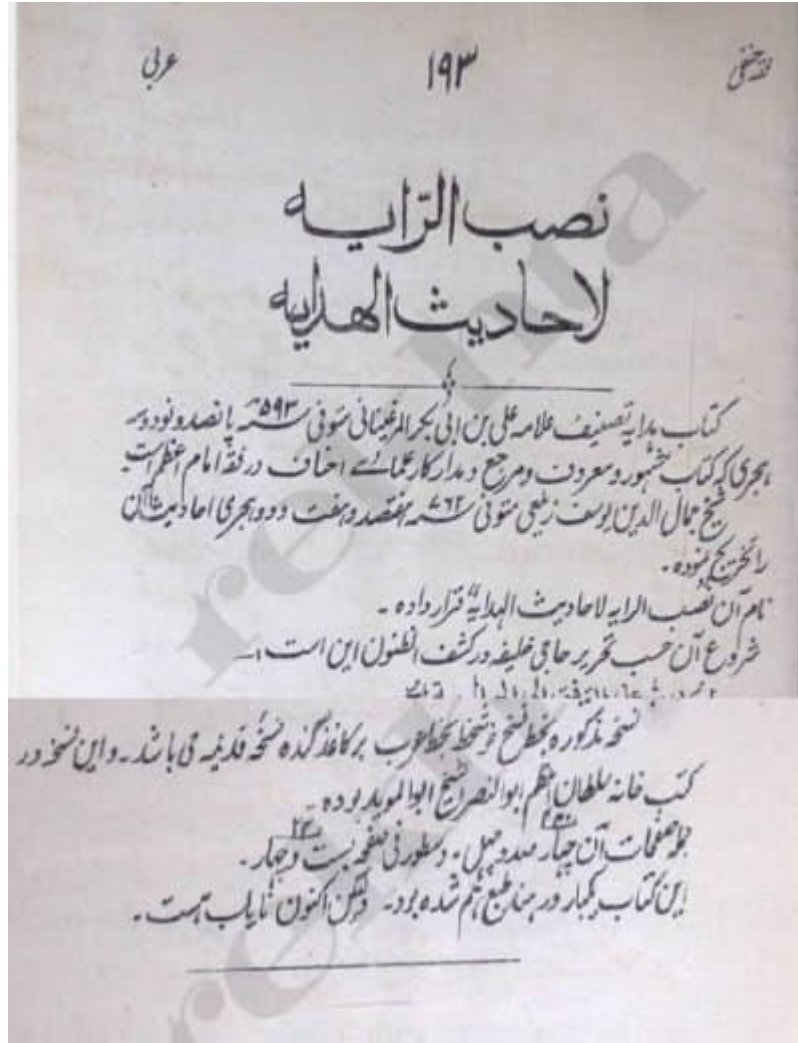 فقہ حنفی ۱۹۳ عربی
نصب الرّایہ
لاحادیث الهدایہ
کتاب ہدایہ تصنیف علامہ علی بن ابی بکر المرغینانی متوفی ۵۹۳ سنہ پانصد و نود و سہ
ہجری کہ کتاب مشہور و معروف و مرجع و مدار کار علمائے احناف در فقہ امام اعظم است
شیخ جمال الدین یوسف زیلعی متوفی ۷۶۲ سنہ ہفتصد و ہفت و دو ہجری احادیث آن
را تخریج نمودہ -
نام آن "نصب الرایہ لاحادیث الہدایہ" قرار دادہ -
شروع آن حسب تحریر حاجی خلیفہ در کشف الظنون این است :-
نسخہ مذکورہ بخط نسخ خوشخط بخط عرب بر کاغذ گندہ نسخۂ قدیمہ می باشد - و این نسخہ در
کتب خانہ سلطان اعظم ابو النصر شیخ ابو الموید بودہ -
جملہ صفحات آن چہار صد و چہل - و سطور فی صفحہ بست و چہار ۲۴ -
این کتاب یکبار در ہند طبع ہم شدہ بود - لیکن اکنون نایاب ہست -
rekhta
rekhta